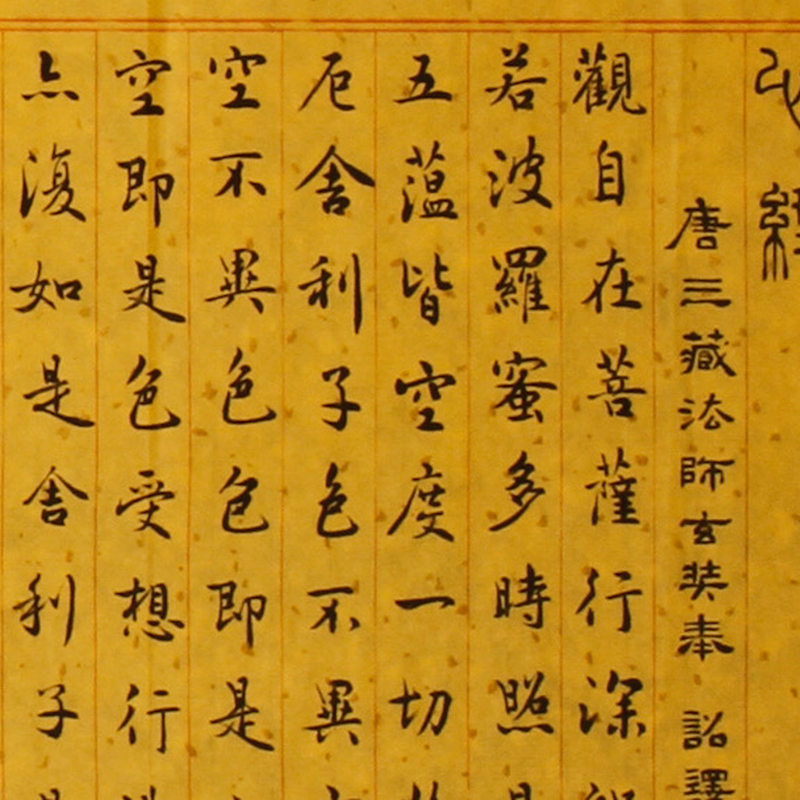 心經
唐三藏法師玄奘奉詔譯
觀自在菩薩行深
若波羅蜜多時照
五蘊皆空度一切
厄舍利子色不異
空不異色色即是
空即是色受想行
亦復如是舍利子